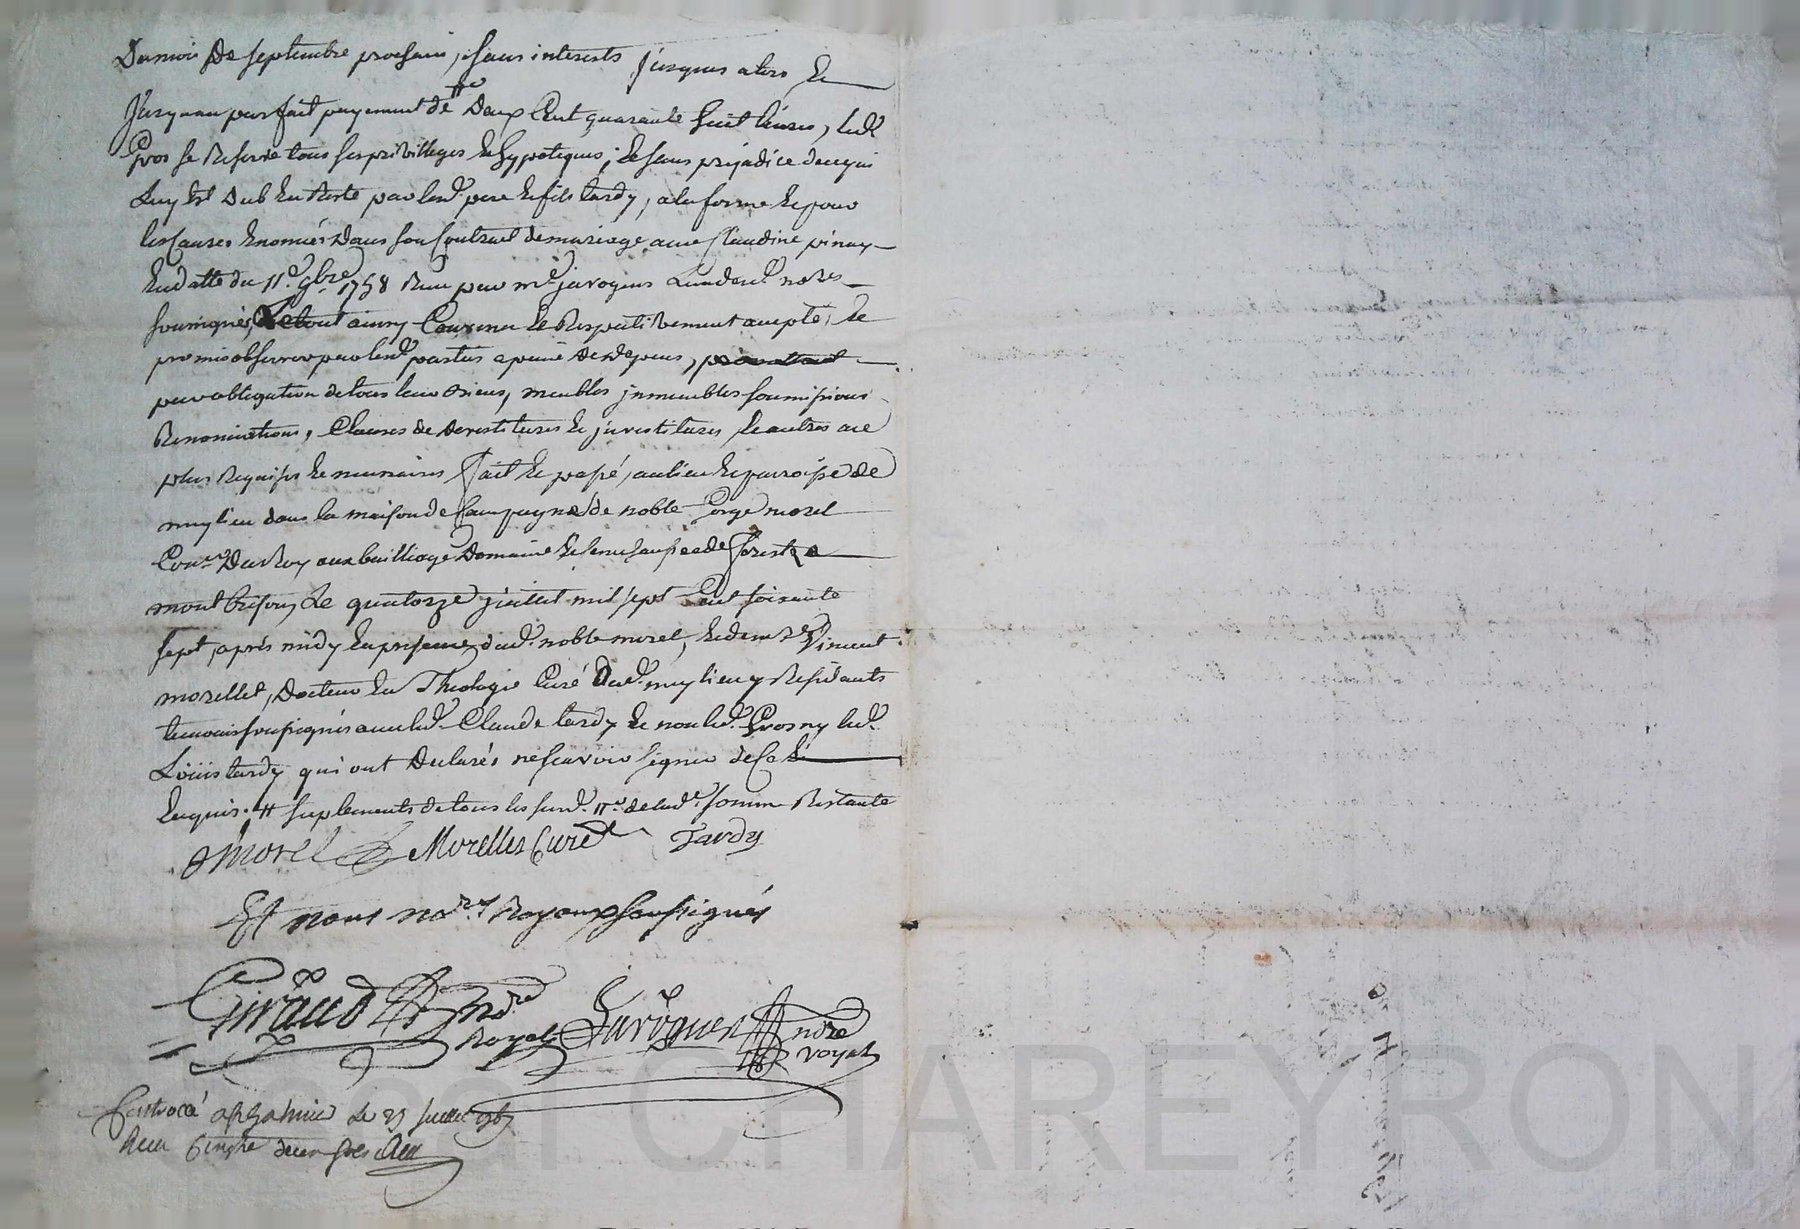 Du mois de septembre prochain, sans interests jusques alors Et
Jusquau parfait payement de # Deux Cent quarante huit livres, led.
Gros se Reserve tous ses privilleges et hypoteques; et sans prejudice de ce qui
Luy Est Dub En Reste par lesd. pere et fils tardy, a la forme Et pour
les Causes Enoncés Dans son Contract de mariage avec Claudine pinay
En datte du 11.e 9bre 1758 Reçu par me javogues Lun desd. no.res
soussignés, Le tout ainsy Convenu Et Respectivement accepté, Et
promis observer par lesd. parties a peine de depens,
par obligation de tous leurs biens, meubles jmmeubles soumissions
Renonciations, Clauses de devestitures Et jnvestitures Et autres au
plus Requises Et necessaires fait Et passé, au lieu Et parroisse de
muglieu dans la maison de Campagne de noble George morel
Con.er Du Roy aux bailliage Domaine Et senechaussée de forest a
montbrison, Le quatorze juillet mil sept Cent soixante
sept, après midy En presence dud. noble morel, Et de mre Vincent
morellet, Docteur En Theologie Curé Dud. muglieu y Residants
temoins soussignés avec led. Claude tardy Et non led. Gros ny led.
Loüis tardy qui ont Declarés ne scavoir signer de Ce
Enquis. # suplements de tous les susd. de lad. somme Restante
Morel Morellet Curé Tardy
Et nous no.res Royaux soussignés
Giraud No.re Royal Javogues Nore Royal
Controlé a St Galmier Le 27 Juillet 1767
Reçu
CHAREYRON